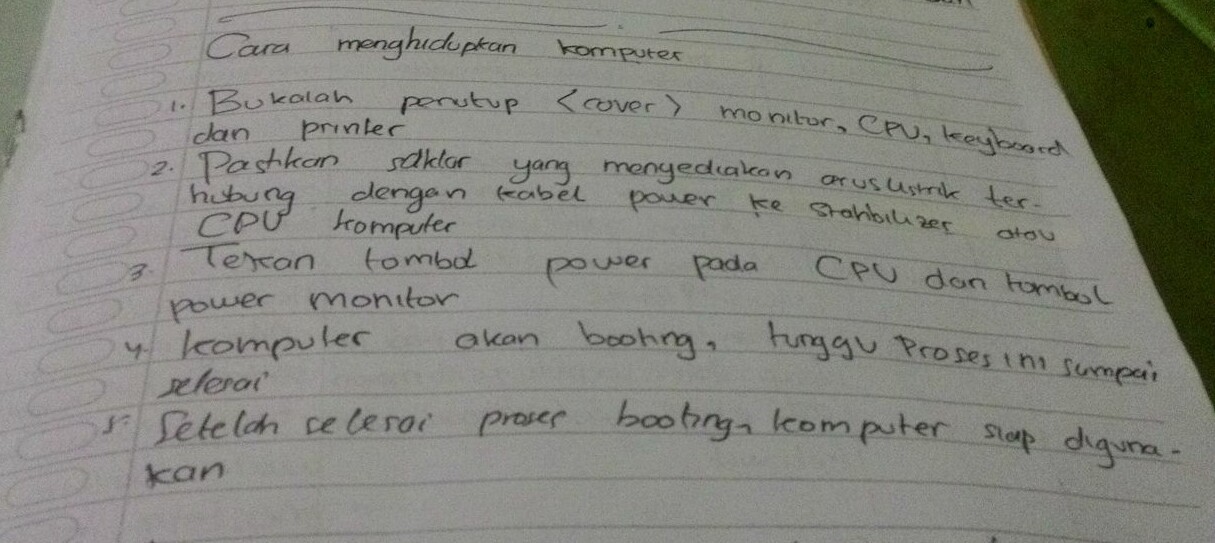 Cara menghidupkan komputer
1. Bukalah penutup <cover> monitor, CPU, keyboard
dan printer
2. Pastikan saklar yang menyediakan arus listrik ter-
hubung dengan kabel power ke stahbilizer atau
CPU komputer
3. Tekan tombol power pada CPU dan tombol
power monitor
4. komputer akan booting, tunggu proses ini sampai
selesai
5. Setelah selesai proses booting, komputer siap diguna-
kan